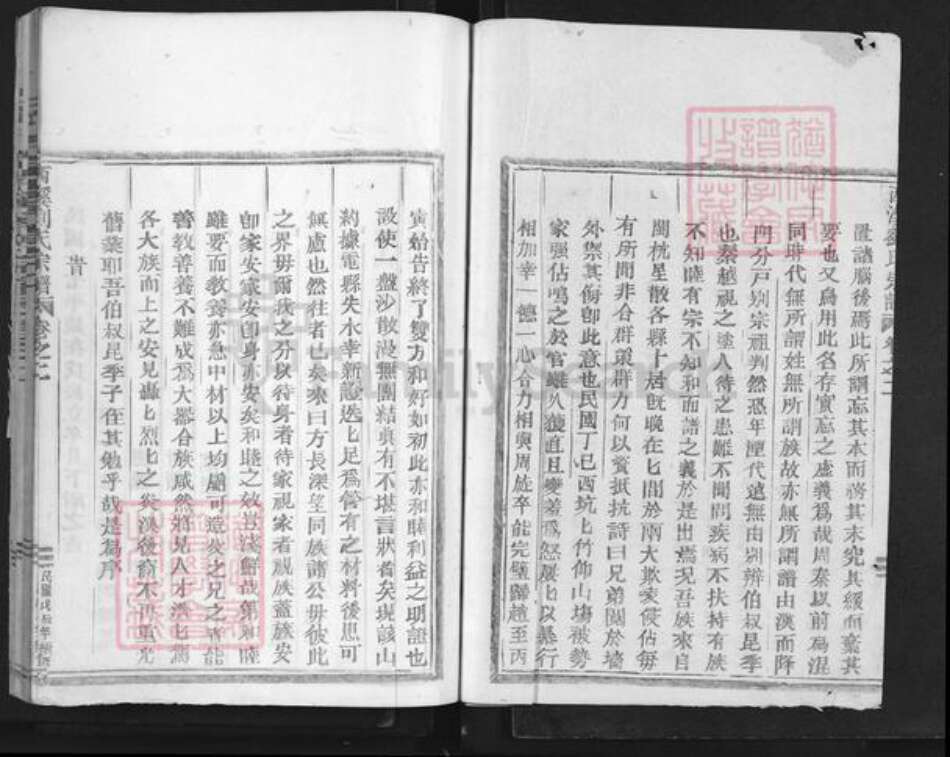 置議腦後焉此所謂忘其本而務其末究其緩而棄其
要也又烏用此名存實忘之虛義爲哉周秦以前爲混
同時代無所謂姓無所謂族故亦無所謂譜由漢而降
門分戶別宗祖判然恐年歷代遠無由別辨伯叔昆季
也秦越視之塗人待之患難不聞問疾病不扶持有族
不知睦有宗不知和而譜之義於是出焉况吾族來自
閩杭星散各縣卜居旣晚在匕間於兩大欺凌侵佔每
有所聞非合群策群力何以資抵抗詩曰兄弟鬩於墻
外禦其侮卽此意也民國丁巳西坑上竹仰山塲被勢
家强佔鳴之於官雖八獲直且變羞爲怒屢匕以暴行
相加幸一德一心合力相與周旋卒能完璧歸趙至丙
寅始告終了雙方和好如初此亦和睦利益之明證也
設使一盤沙散漫無團結眞有不堪言狀者矣現該山
約據電縣失水幸新誌迭匕足爲管有之材料後思可
無慮也然往者已矣來日方長深望同族諸公毋彼此
之界毋爾我之分以待身者待家視家者視族蓋族安
卽家安家安卽身亦安矣和睦之效豈淺鮮哉第和睦
雖要而教養亦急中材以上均屬可造父之兄之
善教善養不難成爲大器合族咸然將見人才濟匕
各大族而上之安見轟匕烈匕之炎漢後裔不再
舊業耶吾伯叔昆季子侄其勉乎哉是爲序
南溪劉氏宗譜 卷之一